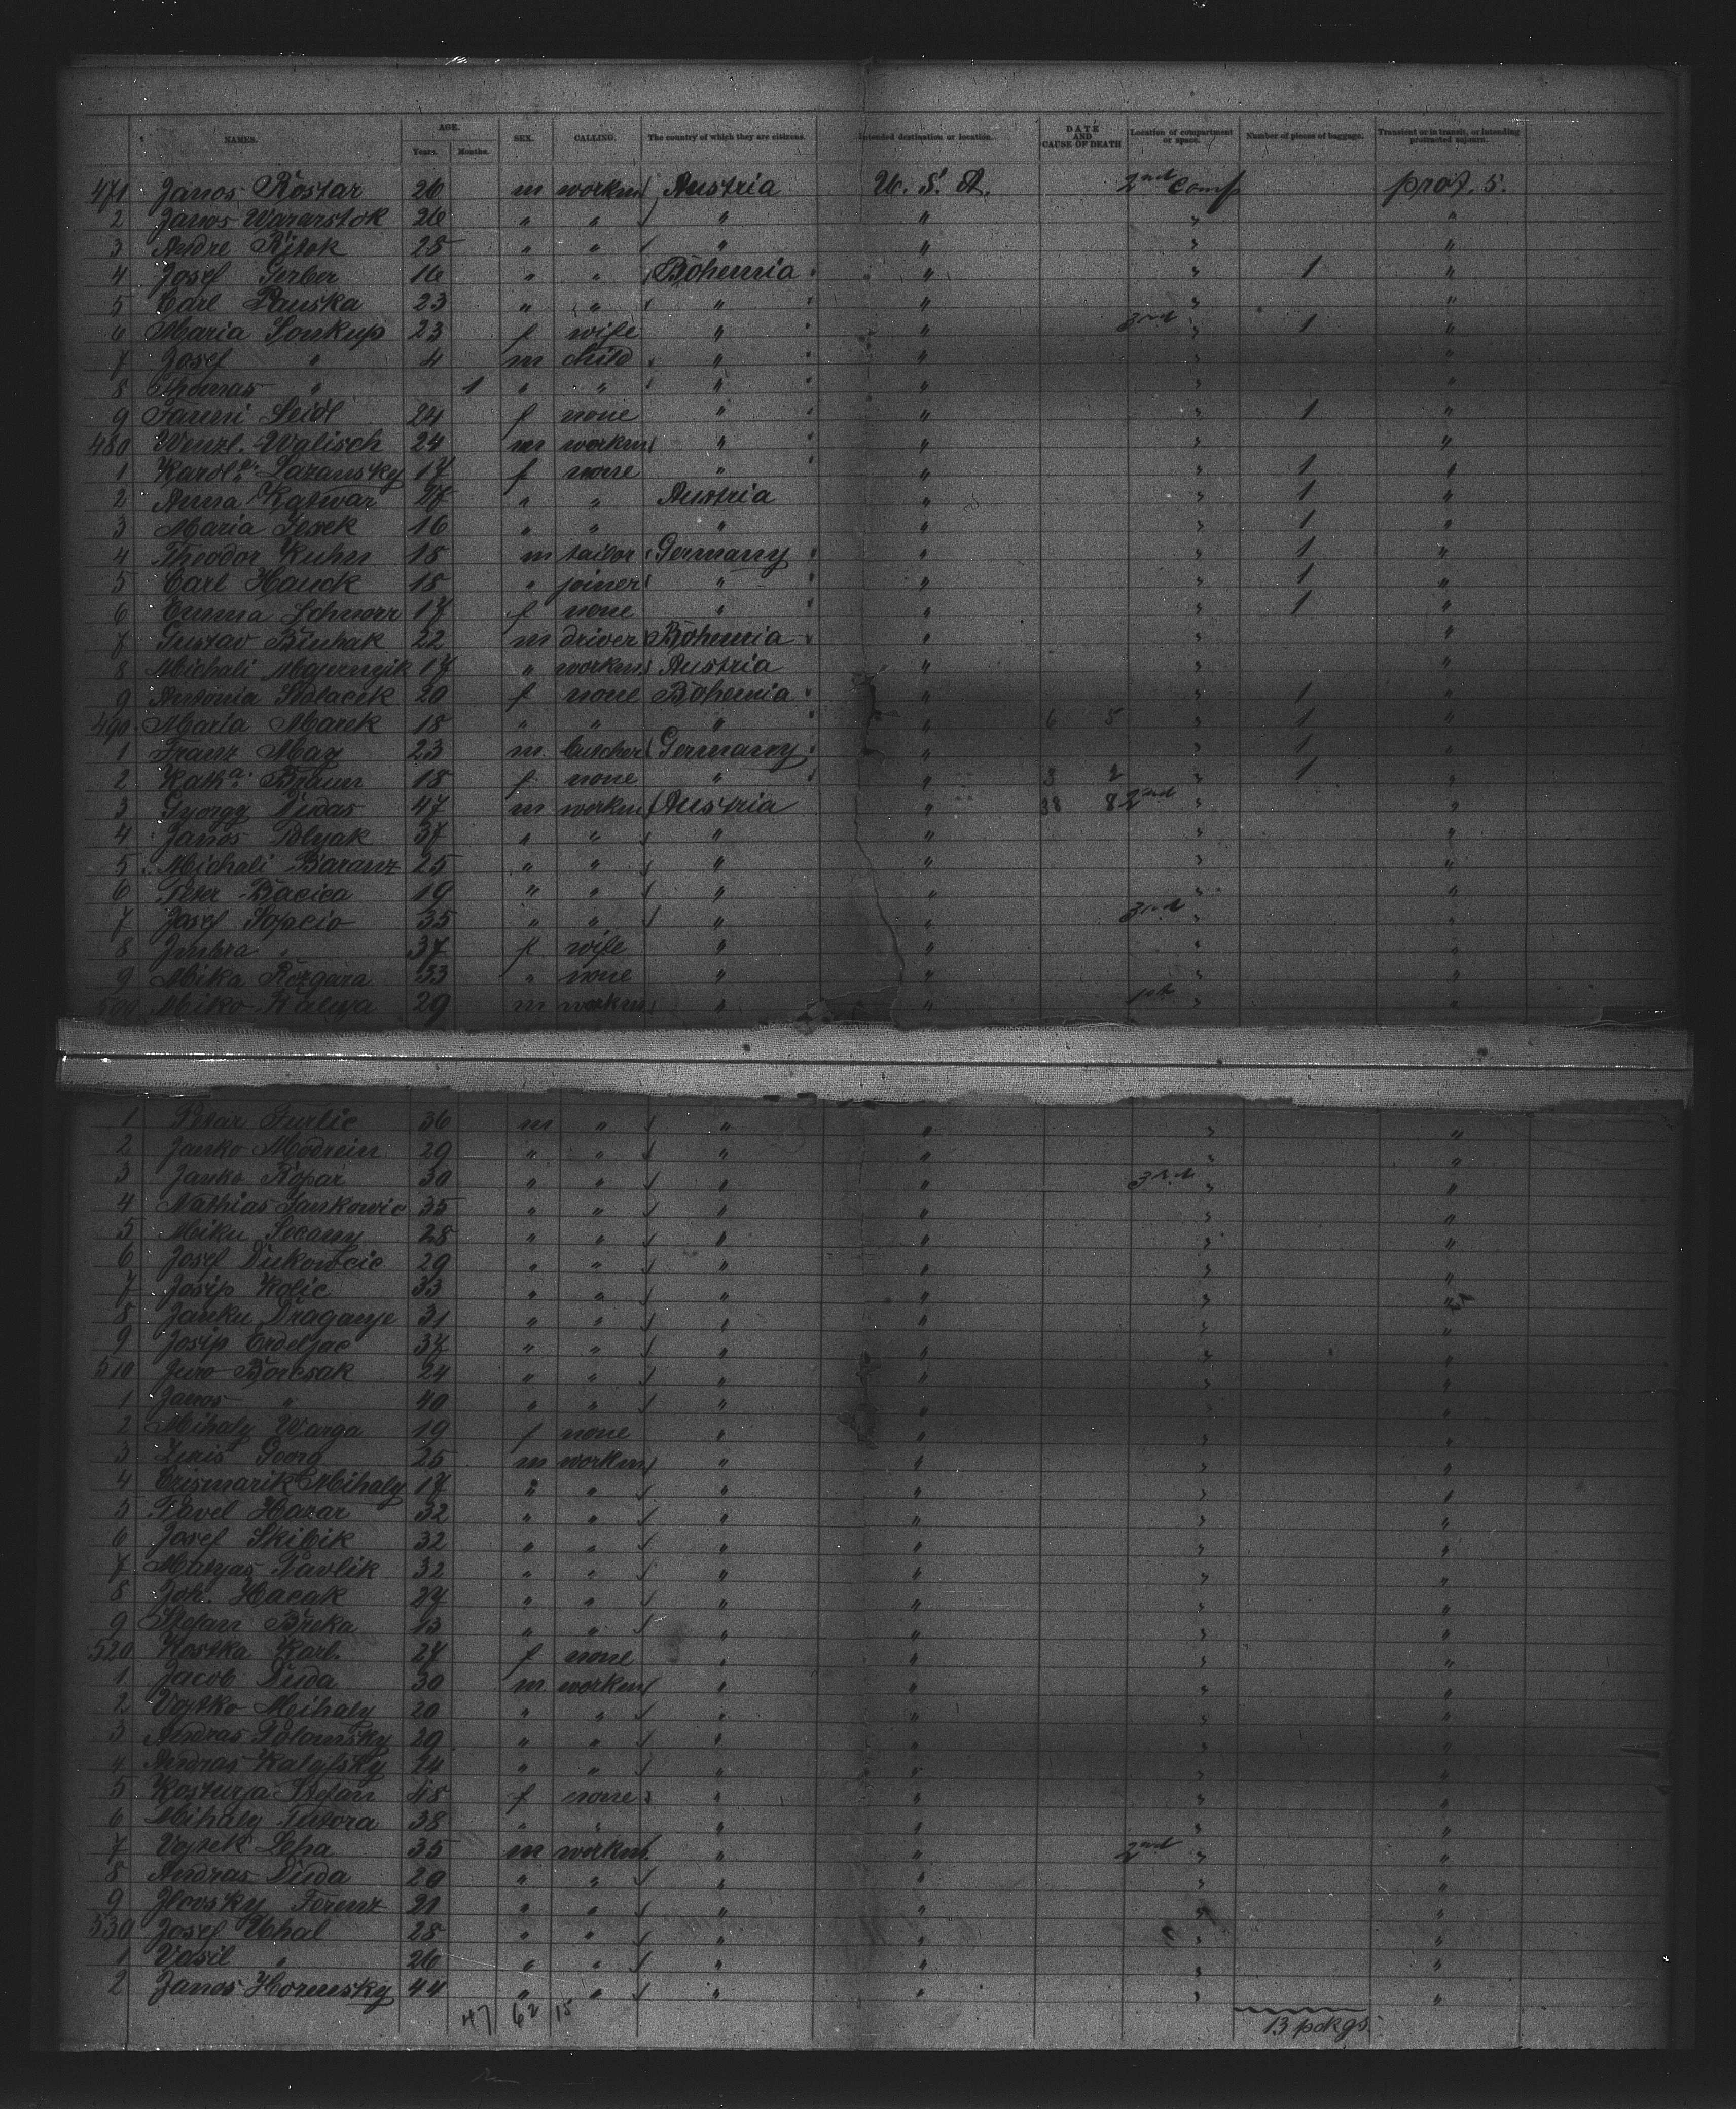 NAMES. AGE. Years. Months. SEX. CALLING. The country of which they are citizens. Intended destination or location. DATE AND CAUSE OF DEATH Location of compartment or space. Number of pieces of baggage. Transient or in transit, or intending protracted sojourn.
471 Janos Rostar 26 m workm Austria U. S. A. 2nd Comp prot. s.
2 Janos Wararstok 26 " " " " " "
3 Andre Ritok 25 " " " " " "
4 Josef Gerber 16 " " Bohemia " " 1 "
5 Carl Panska 23 " " " " " "
6 Maria Soukup 23 f wife " " 3rd " 1 "
7 Josef " 4 m child " " " "
8 Thomas " 1 " " " " " "
9 Fanni Seidl 24 f none " " " 1 "
480 Wenzl. Walisch 24 m workm " " " "
1 Karol Lazansky 17 f none " " " 1 "
2 Anna Katwar 27 " " Austria " " 1 "
3 Maria Gesek 16 " " " " " 1 "
4 Theodor Kuhn 18 m tailor Germany " " 1 "
5 Carl Hauck 18 " joiner " " " 1 "
6 Emma Schnorr 17 f none " " " 1 "
7 Gustav Binhak 22 m driver Bohemia " " "
8 Michali Majernyik 17 " workm Austria " " "
9 Antonia Stalacek 20 f none Bohemia " " 1 "
490 Maria Marek 18 " " " " 6 5 " 1 "
1 Franz May 23 m butcher Germany " " 1 "
2 Kath.a Braun 18 f none " " 3 2 " 1 "
3 Gyorgy Didas 47 m workm Austria " 38 8 2nd " "
4 Janos Polyak 37 " " " " " "
5 Michali Baranz 25 " " " " " "
6 Peter Bacica 19 " " " " " "
7 Josef Sopocio 35 " " " " 3rd " "
8 Jmbra " 37 f wife " " " "
9 Mika Rezgara 33 " none " " " "
500 Miko Kalina 29 m workm " " 1st " "
1 Petar Furlic 36 m " " " " "
2 Janko Modrein 29 " " " " " "
3 Janko Ropar 30 " " " " 3rd " "
4 Mathias Jankowic 35 " " " " " "
5 Miku Secany 28 " " " " " "
6 Josef Dukowcic 29 " " " " " "
7 Josip Kolic 33 " " " " " "
8 Janku Draganje 31 " " " " " "
9 Josip Erdeljac 37 " " " " " "
510 Juro Borcsak 24 " " " " " "
1 Janos " 40 " " " " " "
2 Mihaly Warga 19 f none " " " "
3 Juris Georg 25 m workm " " " "
4 Crismarik Mihaly 17 " " " " " "
5 Pavel Hazar 32 " " " " " "
6 Josef Skibik 32 " " " " " "
7 Matyas Pavlik 32 " " " " " "
8 Joh. Hacak 27 " " " " " "
9 Stefan Breka 13 " " " " " "
520 Kostka Karl. 27 f none " " " "
1 Jacob Duda 30 m workm " " " "
2 Vojtko Mihaly 20 " " " " " "
3 Andras Polomsky 29 " " " " " "
4 Andras Kalafsky 24 " " " " " "
5 Kosturja Stefan 48 f none " " " "
6 Mihaly Tutora 38 " " " " " "
7 Vojtek Lepa 35 m workm " " 2nd " "
8 Andras Duda 29 " " " " " "
9 Jlovsky Ferenz 21 " " " " " "
530 Josef Uhal 28 " " " " " "
1 Vasil " 26 " " " " " "
2 Janos Hornusky 44 " " " " " "
47 62 15 13 pckgs.